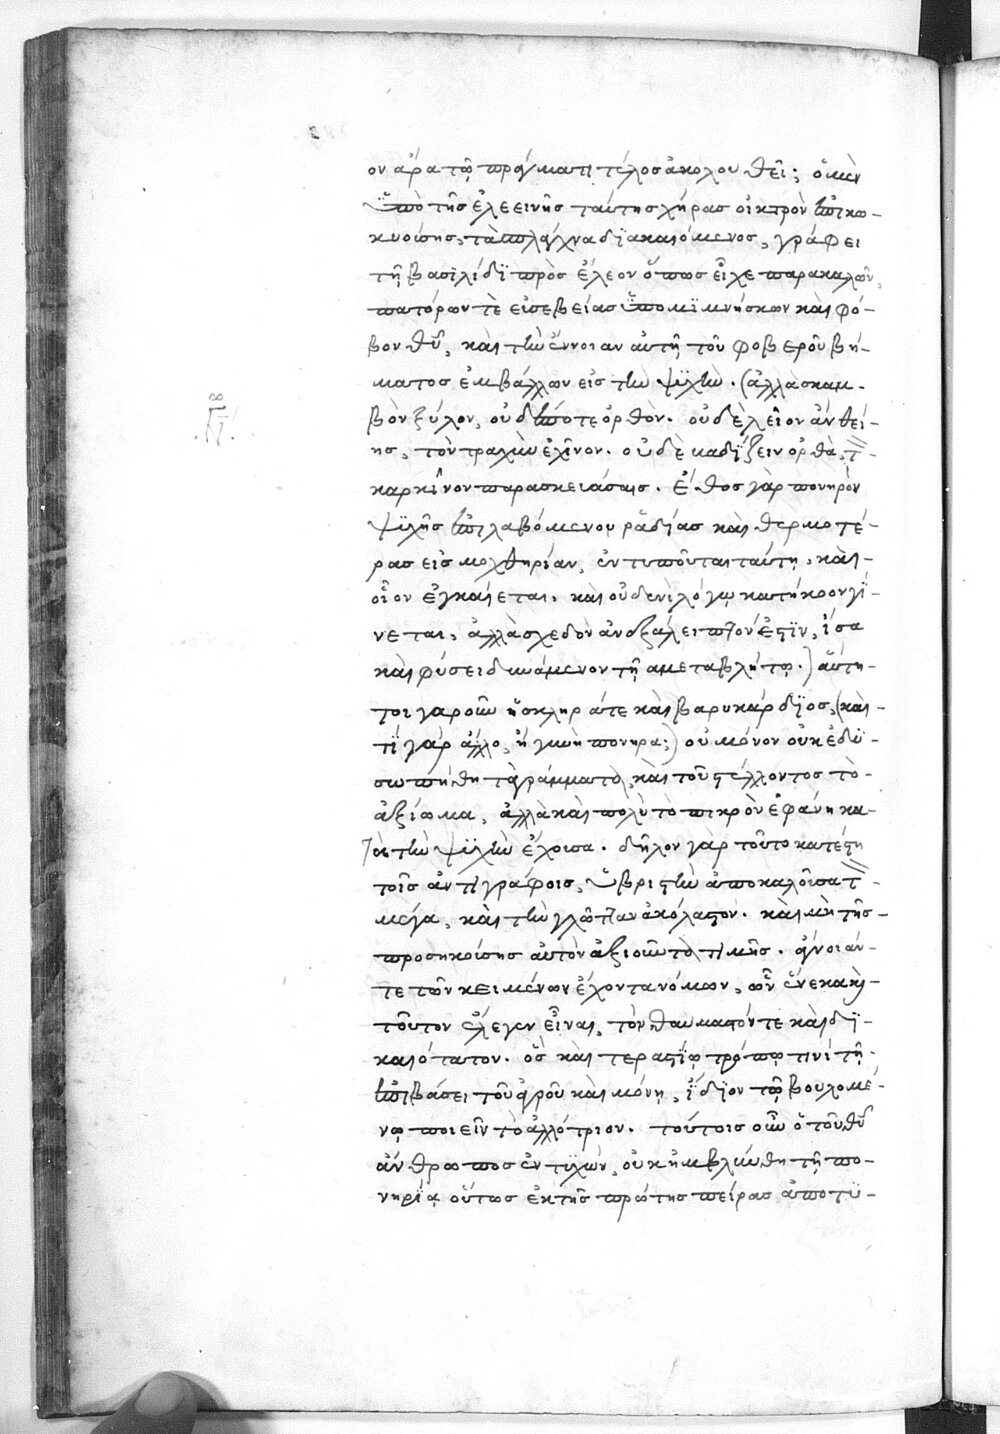 ον ἄρα τῷ πράγματι τέλος ἀκολουθεῖ; ὁ μὲν
ὑπὸ τῆς ἐλεεινῆς ταύτης χήρας οἰκτρὸν ἐπικω-
κυούσης, τὰ σπλάγχνα διακαιόμενος, γράφει
τῇ βασιλίδι πρὸς ἔλεον ὅπως εἶχε παρακαλῶν,
πατόρων τὲ εὐσεβείας ὑπομιμνήσκων καὶ φό-
βον θῦ, καὶ τὴν ἔννοιαν αὐτῇ τοῦ φοβεροῦ βή-
ματος ἐμβάλλων εἰς τὴν ψυχήν. (ἀλλὰ σκαμ-
βὸν ξύλον, οὐδέποτε ὀρθόν. οὐδὲ λεῖον ἂν θεί-
ης, τὸν τραχὺν ἐχῖνον. οὐδὲ βαδίζειν ὀρθὰ, τ(ὸν)
καρκῖνον παρασκευάσαις. ἔθος γὰρ πονηρὸν
ψυχῆς ἐπιλαβόμενον ῥαδίας καὶ θερμοτέ-
ρας εἰς μοχθηρίαν, ἐντυποῦται ταύτῃ, καὶ
οἷον ἐγκαίεται. καὶ οὐδενὶ λόγῳ κατήκοον γί-
νεται, ἀλλὰ σχεδὸν ἀνεξάλειπτόν ἐστιν, ἴσα
καὶ φύσει δυνάμενον τῇ ἀμεταβλήτῳ.) αὕτη
τοιγαροῦν ἡ σκληρά τε καὶ βαρυκάρδιος, (καὶ
τί γὰρ ἄλλο, ἢ γυνὴ πονηρά;) οὐ μόνον οὐκ ἐδυ-
σωπήθη τὸ γράμματο, καὶ τοῦ στέλλοντος τὸ
ἀξίωμα, ἀλλὰ καὶ πολὺ τὸ πικρὸν ἐφάνη κα-
τὰ τὴν ψυχὴν ἔχουσα. δῆλον γὰρ τοῦτο κατέστη
τοῖς ἀντιγράφοις, ὑβριστὴν ἀποκαλοῦσα τ(ὸν)
μέγα, καὶ τὴν γλῶτταν ἀκόλαστον. καὶ μὴ τῆς
προσηκούσης αὐτὸν ἀξιοῦντο τιμῆς. ἄγνοιάν
τε τῶν κειμένων ἔχοντα νόμων, ὧν ἕνεκα καὶ
τοῦτον ἔλεγεν εἶναι, τὸν θαυμαστόν τε καὶ δι-
καιότατον. ὃς καὶ τεραστίῳ τρόπῳ τινὶ τῇ
ἐπιβάσει τοῦ ἀγροῦ καὶ μόνῃ, ἴδιον τῷ βουλομέ-
νῳ ποιεῖν τὸ ἀλλότριον. τούτοις οὖν ὁ τοῦ θῦ
ἄνθρωπος ἐντυχών, οὐκ ἠμβλύνθη τῇ πο-
νηρίᾳ οὕτως ἐκ τῆς πρώτης πείρας ἀποτυ-